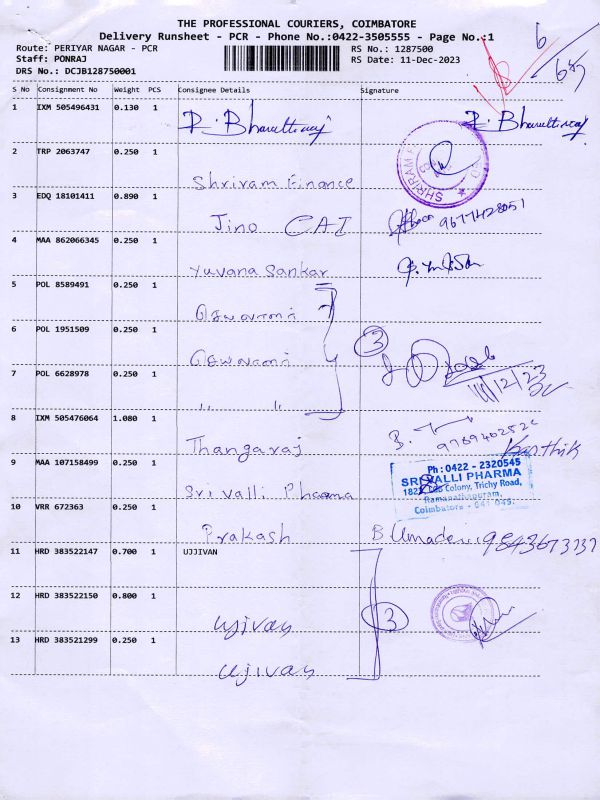 THE PROFESSIONAL COURIERS, COIMBATORE
Delivery Runsheet - PCR - Phone No.:0422-3505555 - Page No.:1
Route: PERIYAR NAGAR - PCR
RS No.: 1287500
Staff: PONRAJ
RS Date: 11-Dec-2023
DRS No.: DCJB128750001
S No Consignment No Weight PCS Consignee Details Signature
1 IXM 505496431 0.130 1
2 TRP 2063747 0.250 1
Shriram Finance
SHRIRAM
3 EDQ 18101411 0.890 1
Jino CAI 9677428051
4 MAA 862066345 0.250 1
Yuvana Sankar
5 POL 8589491 0.250 1
6 POL 1951509 0.250 1
3
7 POL 6628978 0.250 1
" "
11/12/23
8 IXM 505476064 1.080 1
Thangaraj
Karthik
9 MAA 107158499 0.250 1
Sri valli Pharma
Ph:0422 - 2320545
SRI VALLI PHARMA
Colony, Trichy Road,
Ramanathapuram,
Coimbatore - 641 045.
10 VRR 672363 0.250 1
Prakash
11 HRD 383522147 0.700 1 UJJIVAN
12 HRD 383522150 0.800 1
ujivan
3
13 HRD 383521299 0.250 1
ujivan